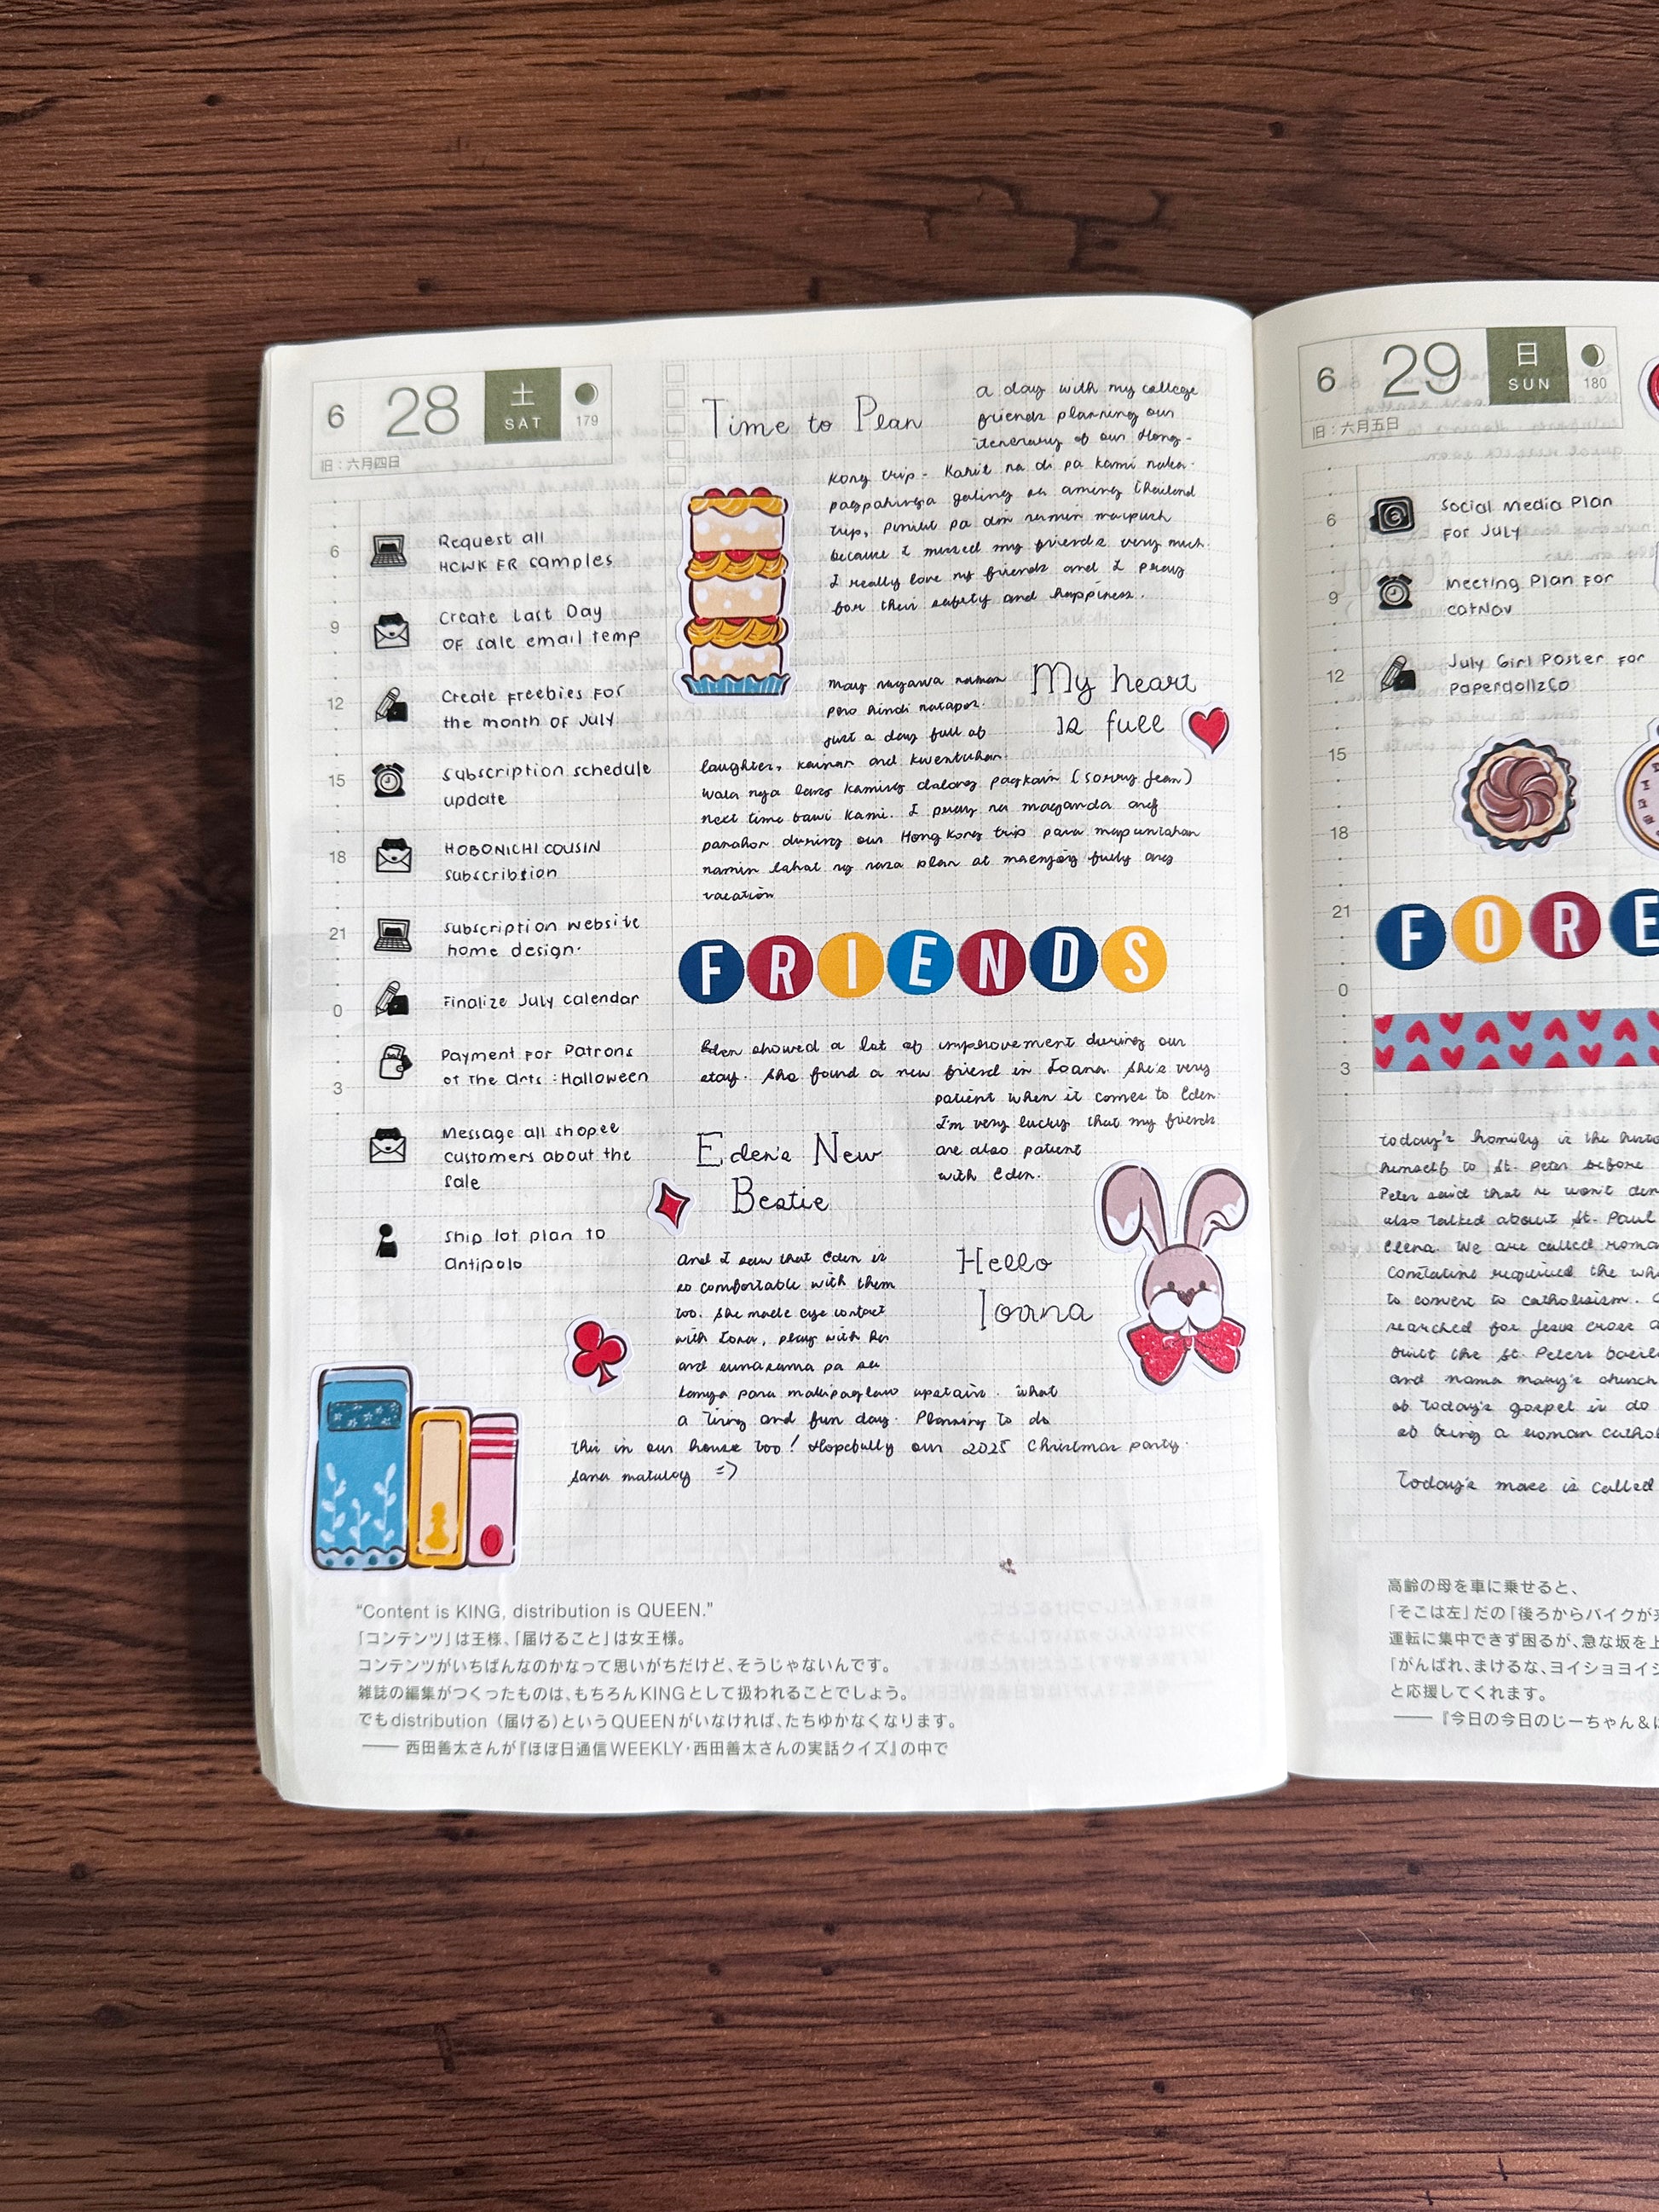 6 28 土 SAT 179
旧：六月四日
6
9
12
15
18
21
0
3
Request all
HCWK FR samples
Create Last Day
OF sale email temp
Create Freebies For
the month OF July
Subscription schedule
update
HOBONICHI COUSIN
subscribtion
Subscription website
home design.
Finalize July Calendar
Payment For Patrons
of The Arts : Halloween
Message all shopee
customers about the
sale
Ship lot plan to
Antipolo
Time to Plan
a day with my college
friends planning our
itenerary of our Hong-
Kong trip - Kahit na di pa kami naka-
pagpahinga galing sa aming Thailand
trip, pinilit pa din namin
because I missed my friends very much.
I really love my friends and I pray
for their safety and happiness.
My heart
is full
May nagawa naman
pero hindi natapos.
just a day full of
laughter, kainan and kwentuhan.
wala nga lang kaming dalang pagkain (sorry Jean)
next time bawi kami. I pray na maganda ang
panahon during our Hong Kong trip para mapuntahan
namin lahat ng nasa plan at maenjoy fully ang
vacation
FRIENDS
Eden showed a lot of improvement during our
stay. She found a new friend in Ioana. She's very
patient when it comes to Eden.
I'm very lucky that my friends
are also patient
with Eden.
Eden's New
Bestie
Hello
Ioana
And I saw that Eden is
so comfortable with them
too. She made eye contact
with Iona, play with her
and sumasama pa sa
kanya para makipaglaro upstairs. What
a tiring and fun day. Planning to do
this in our house too! Hopefully our 2025 Christmas party.
Sana matuloy =)
“Content is KING, distribution is QUEEN.”
「コンテンツ」は王様、「届けること」は女王様。
コンテンツがいちばんなのかなって思いがちだけど、そうじゃないんです。
雑誌の編集がつくったものは、もちろんKINGとして扱われることでしょう。
でもdistribution（届ける）というQUEENがいなければ、たちゆかなくなります。
—— 西田善太さんが『ほぼ日通信WEEKLY・西田善太さんの実話クイズ』の中で
6 29 日 SUN 180
旧：六月五日
6
9
12
15
18
21
0
3
Social Media Plan
For July
Meeting Plan For
CatNav
July Girl Poster For
PaperdollzCo
FORE
Today's homily is the
himself to St. Peter before
Peter said that he won't
also talked about St. Paul
Elena. We are called
Constatine required the
to convert to catholisism.
searched for Jesus cross
built the St. Peters
and mama mary's church
of today's gospel is do
of being a roman
Today's mass is called
高齢の母を車に乗せると、
「そこは左」だの「後ろからバイクが
運転に集中できず困るが、急な坂を
「がんばれ、まけるな、ヨイショヨイ
と応援してくれます。
—— 『今日の今日のじーちゃん＆